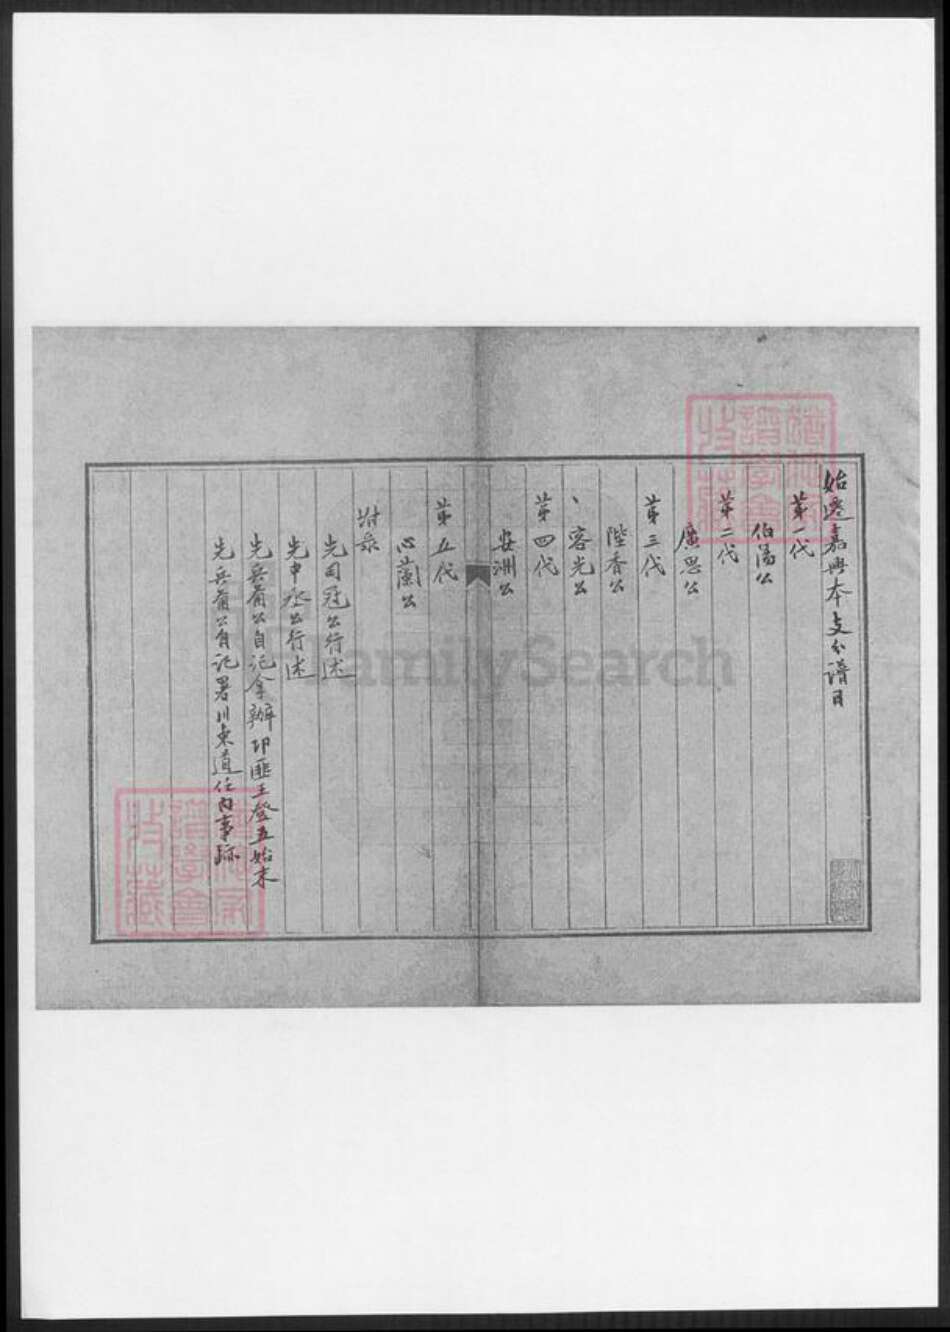 始遷嘉興本支分譜目
第一代
伯湯公
第二代
廣思公
第三代
陛香公
、容光公
第四代
安洲公
第五代
心蘭公
附录
先司冠公行述
先中丞公行述
先兵備公自記拿辦邛匪王登五始末
先兵備公自記署川東道任內事跡
譜學會
收藏
譜學會
收藏
FamilySearch